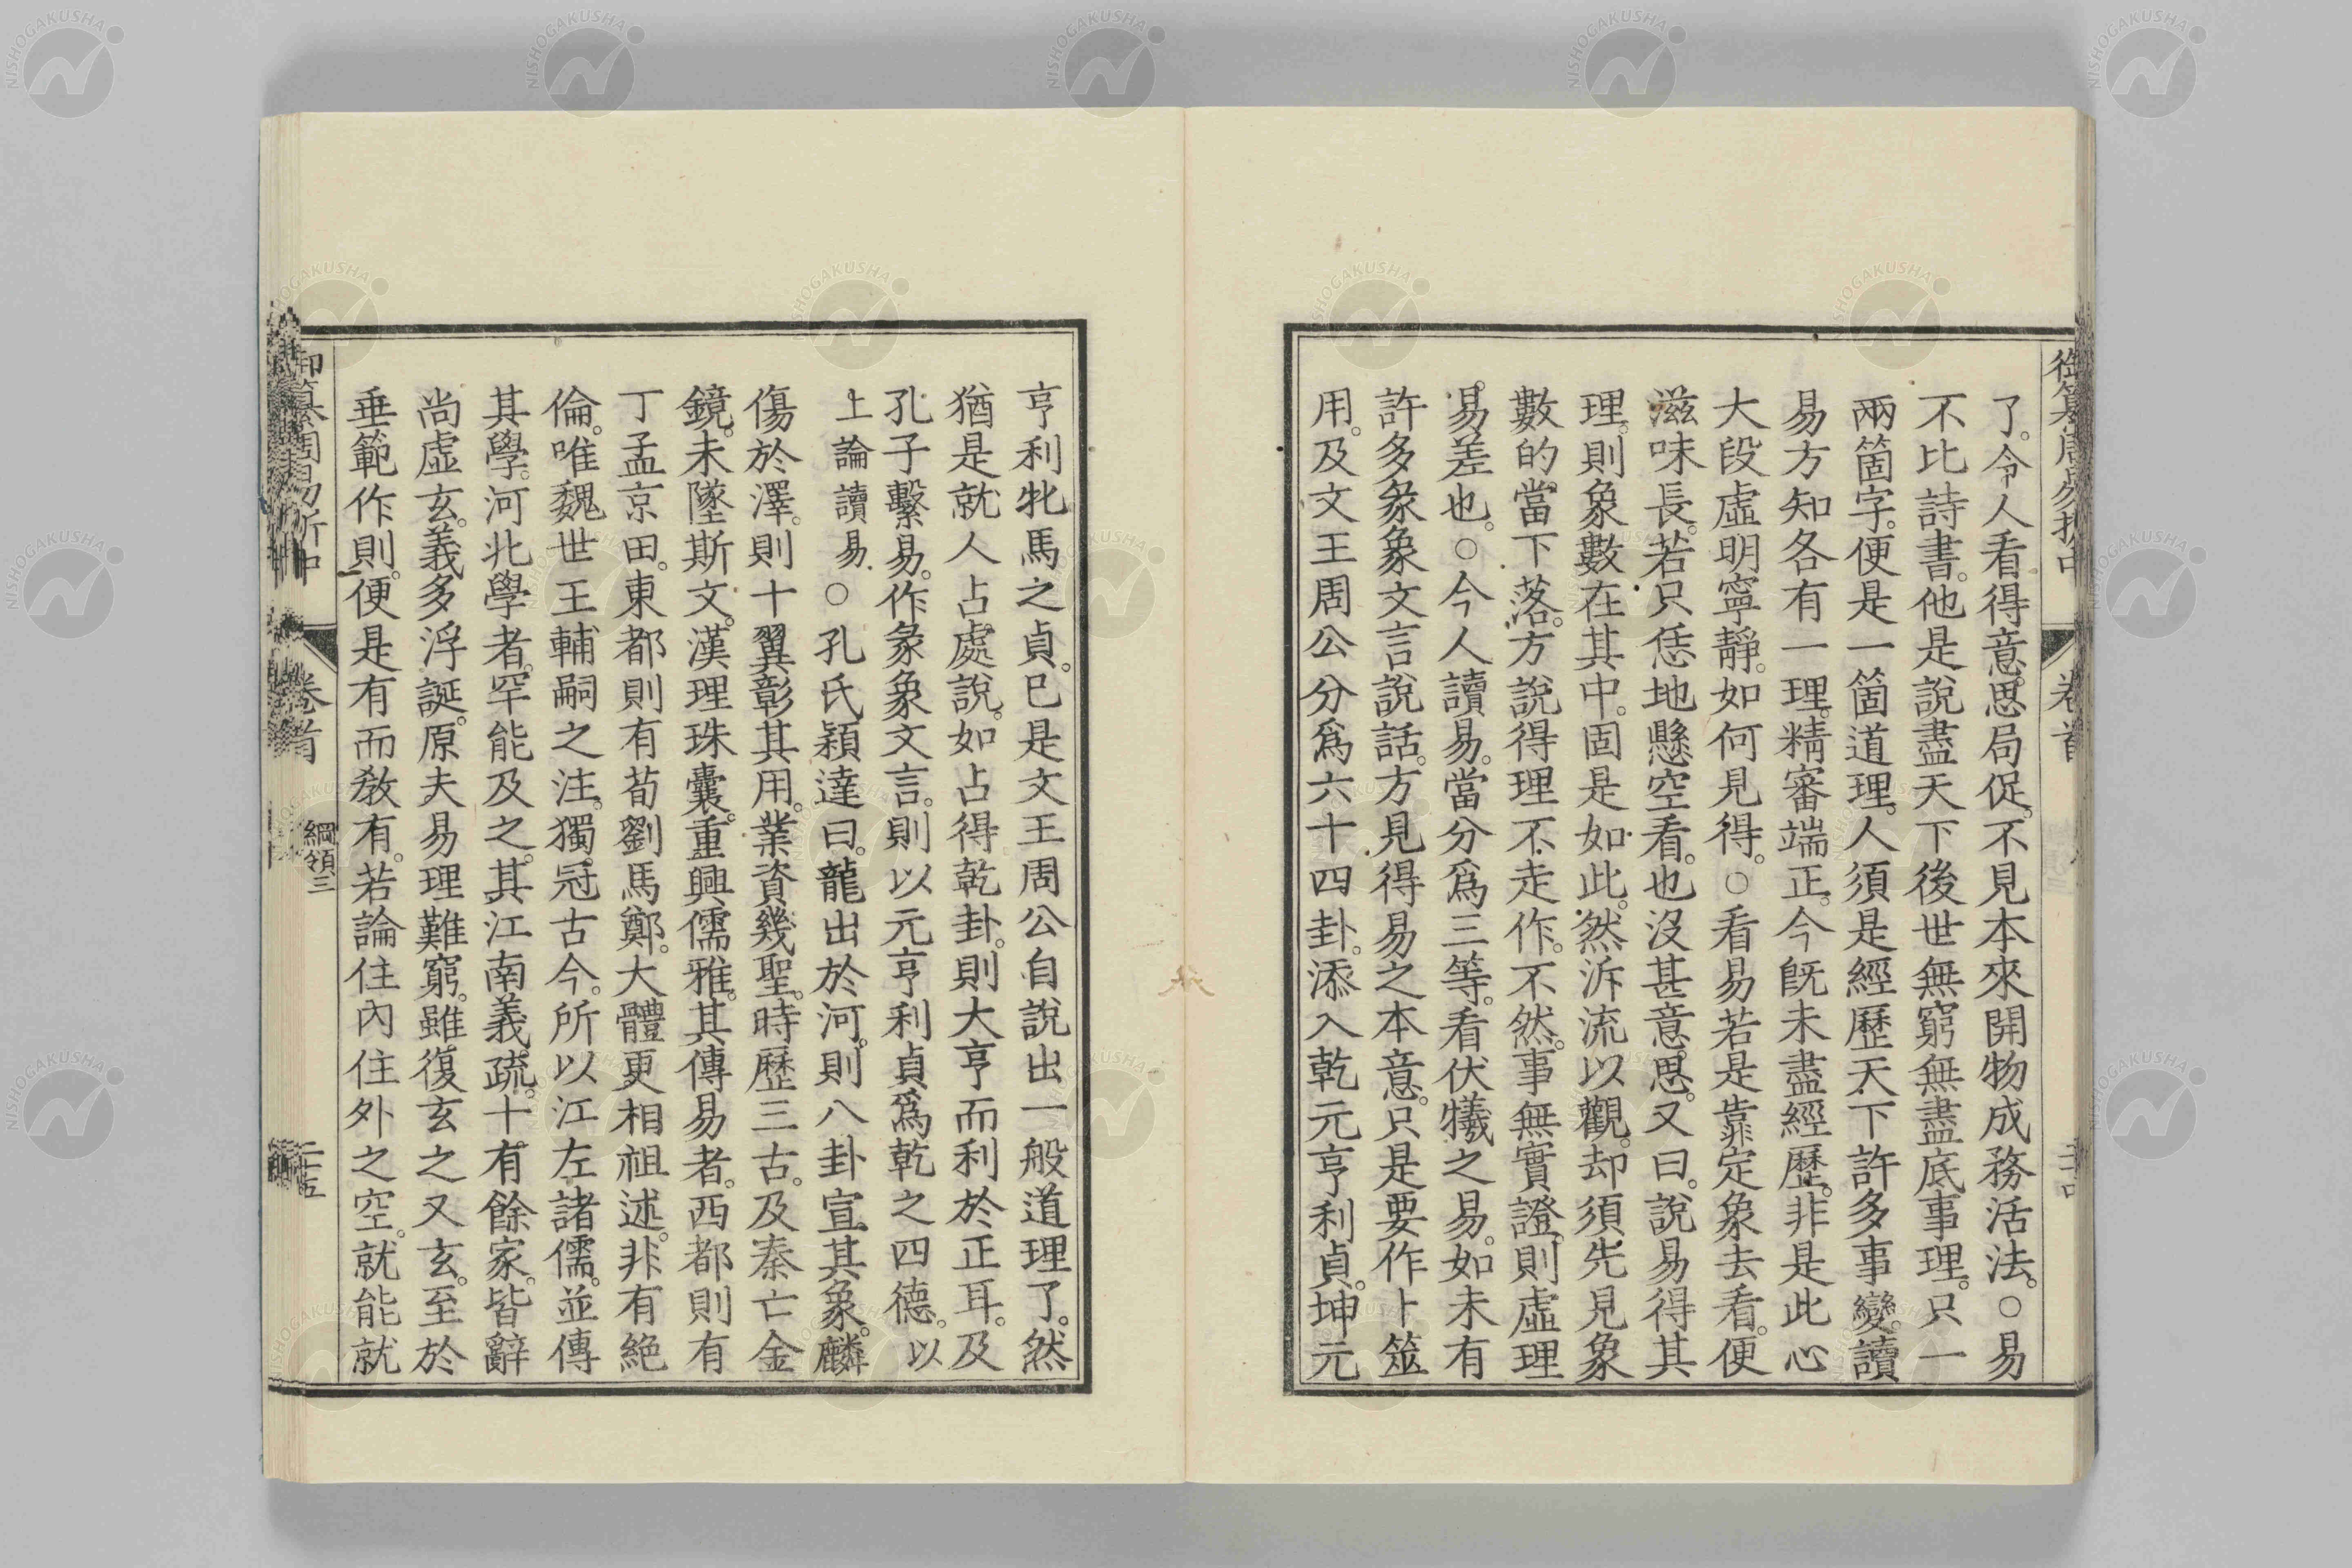 御纂周易折中 卷首
了。令人看得意思局促。不見本來開物成務活法。○易
不比詩書。他是說盡天下後世無窮無盡底事理。只一
兩箇字。便是一箇道理。人須是經歷天下許多事變。讀
易方知各有一理。精審端正。今旣未盡經歷。非是此心
大段虛明寧靜。如何見得。○看易若是靠定象去看。便
滋味長。若只恁地懸空看。也沒甚意思。又曰。說易得其
理。則象數在其中。固是如此。然泝流以觀。却須先見象
數的當下落。方說得理不走作。不然。事無實證。則虛理
易差也。○今人讀易。當分爲三等。看伏犧之易。如未有
許多彖象文言說話。方見得易之本意。只是要作卜筮
用。及文王周公分爲六十四卦。添入乾元亨利貞。坤元
亨利牝馬之貞。巳是文王周公自說出一般道理了。然
猶是就人占處說。如占得乾卦。則大亨而利於正耳。及
孔子繫易。作彖象文言。則以元亨利貞爲乾之四德。以
上論讀易。○孔氏穎達曰。龍出於河。則八卦宣其象。麟
傷於澤。則十翼彰其用。業資幾聖。時歷三古。及秦亡金
鏡。未墜斯文。漢理珠囊。重興儒雅。其傳易者。西都則有
丁孟京田。東都則有荀劉馬鄭。大體更相祖述。非有絕
倫。唯魏世王輔嗣之注。獨冠古今。所以江左諸儒。並傳
其學。河北學者。罕能及之。其江南義疏。十有餘家。皆辭
尚虛玄。義多浮誕。原夫易理難窮。雖復玄之又玄。至於
垂範作則。便是有而敎有。若論住內住外之空。就能就
御纂周易折中 卷首 綱領三 二十五
NISHOGAKUSHA